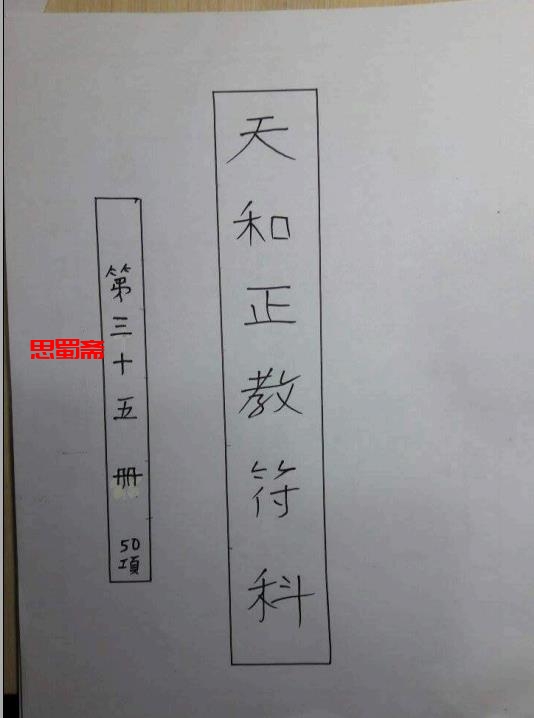 天和正教符科
第三十五册
50
項
思蜀斋